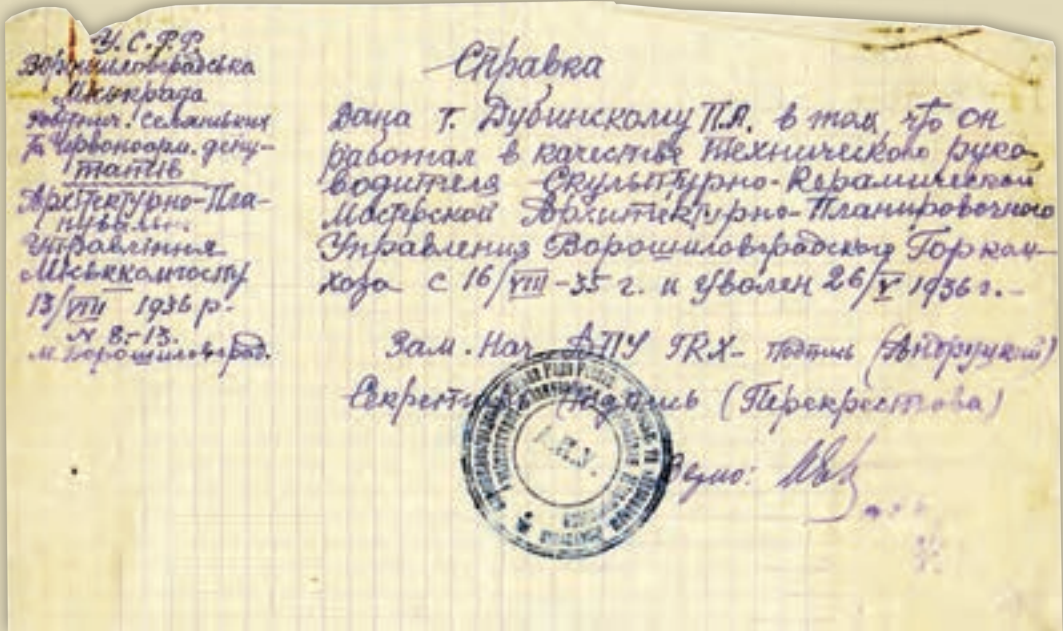 У.С.Р.Р.
Ворошиловградська
Міськрада
Робітнич. Селянських
та Червоноарм. депу-
татів
Архітектурно-Пла-
нувальн.
Управління
Міськкомгоспу
13/VIII 1936 р.
N 8-13.
м. Ворошиловград.
Справка
Дана т. Дубинскому П.А. в том, что он
работал в качестве Технического руко-
водителя Скульптурно-Керамической
Мастерской Архитектурно-Планировочного
Управления Ворошиловградского Горком-
хоза с 16/VIII-35 г. и уволен 26/V 1936 г.-
Зам. Нач. АПУ ГКХ- подпись
Секретарь подпись (Перекрестова)
Верно:
А.П.У.